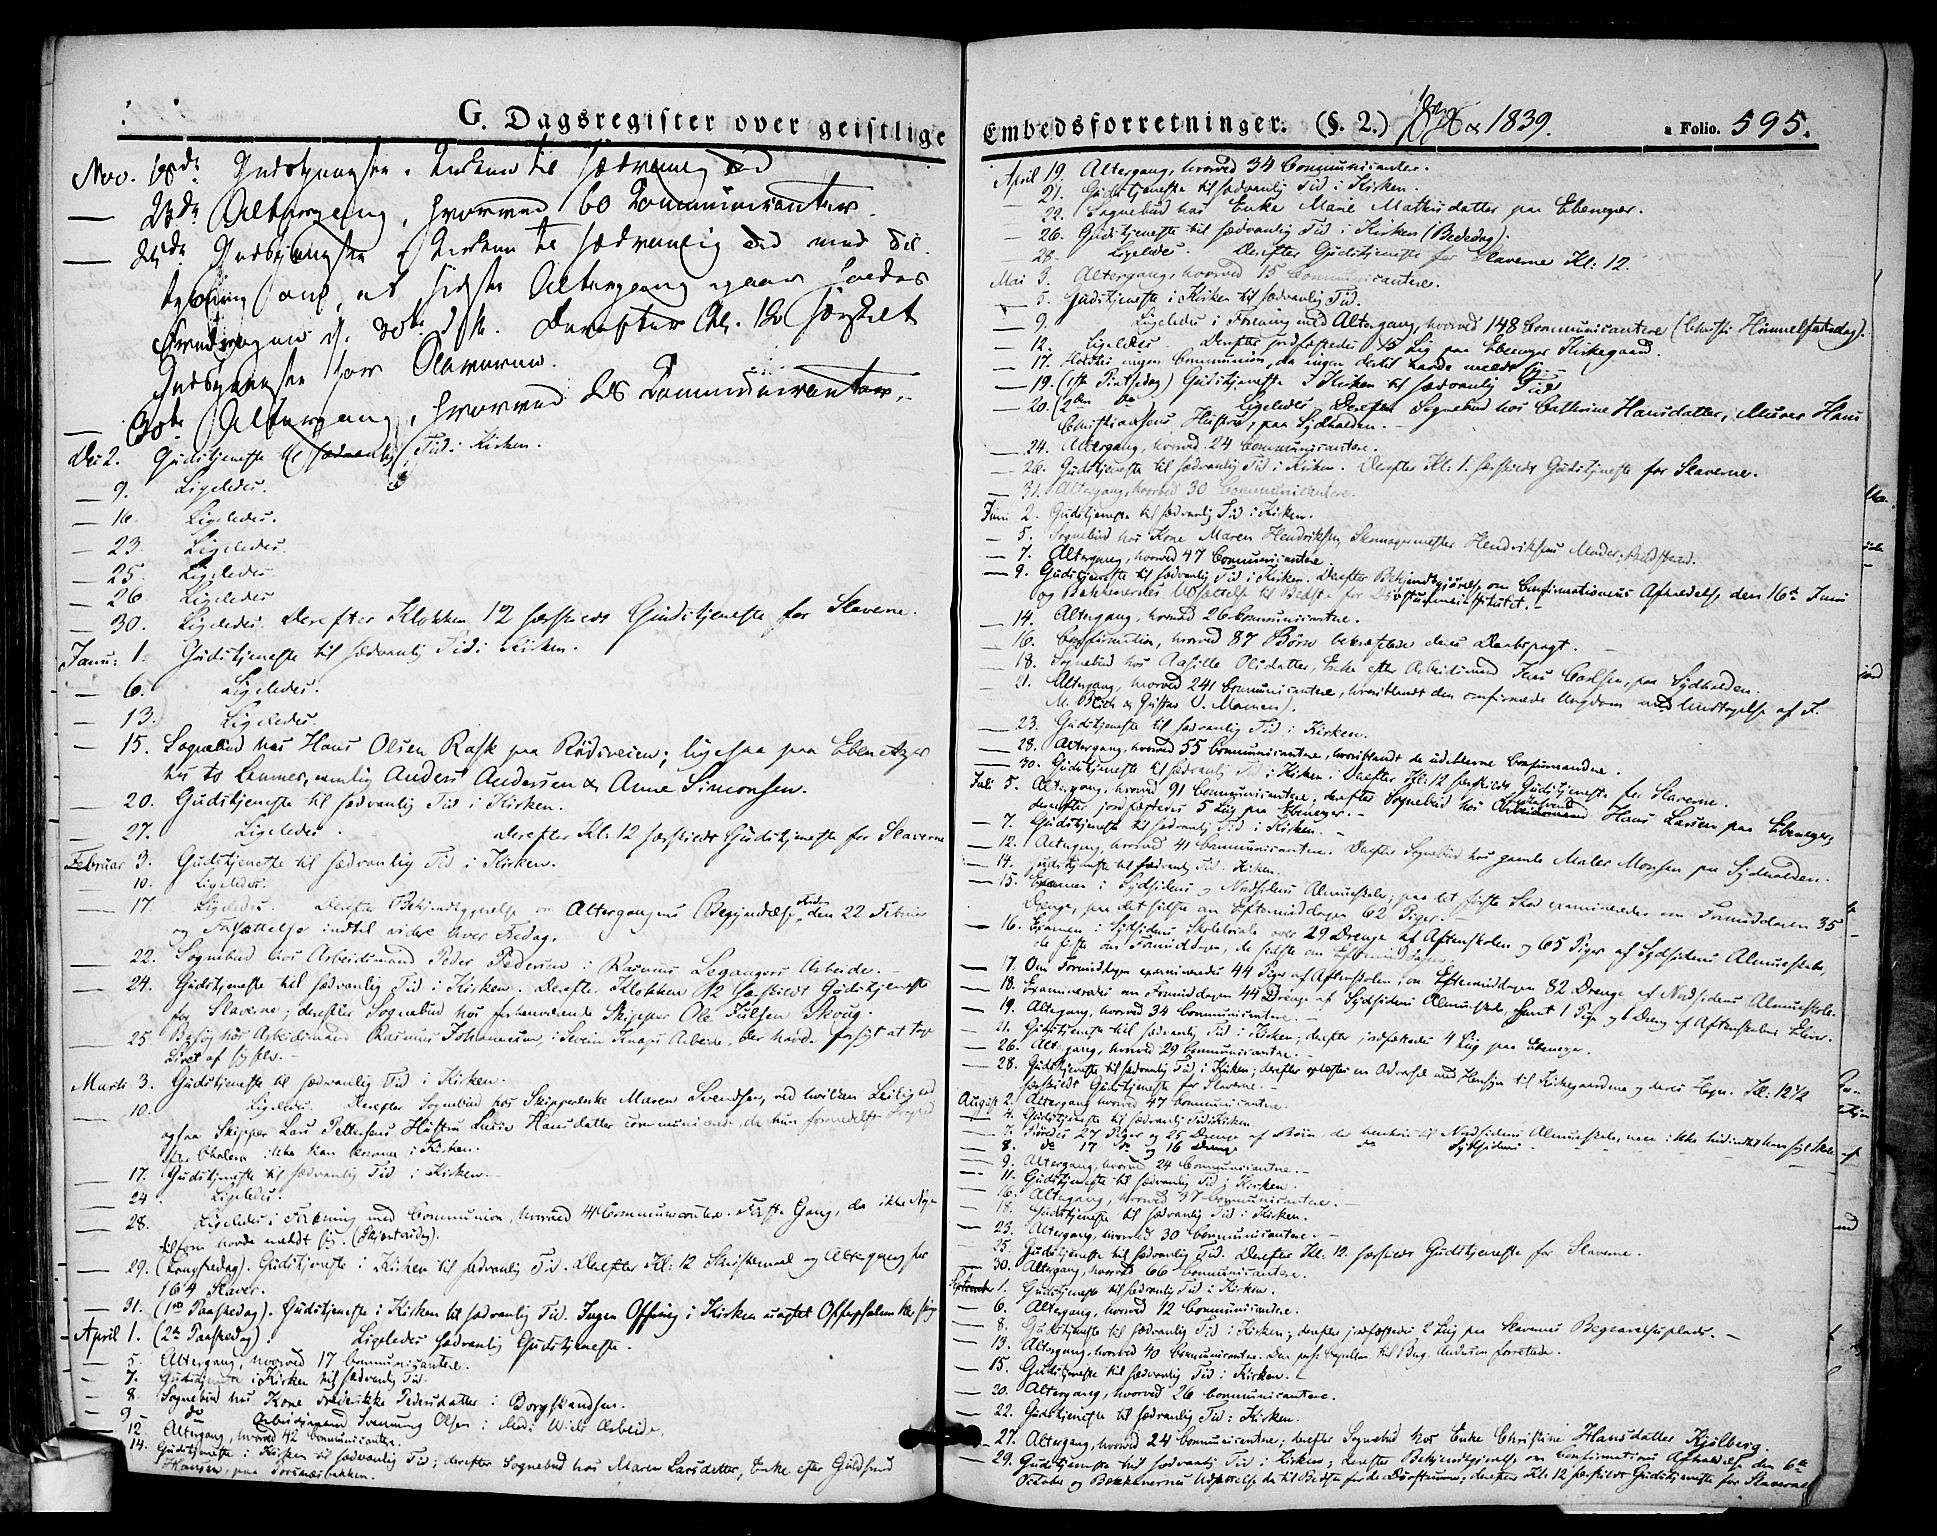 G. Dagsregister over geistlige
Nov. 18de Gudstjeneste i Kirken til sædvanlig Tid
— 23de Altergang, hvorved 60 Communicanter.
— 25de Gudstjeneste i Kirken til sædvanlig Tid med Til-
om, at sidste Altergang i Aar holdes
Fredagen d. 30te Derefter Kl. 12 særskilt
Gudstjeneste for Slaverne.
— 30te Altergang, hvorved Communicanter.
Dec 2. Gudstjeneste til sædvanlig Tid i Kirken.
— 9. Ligeledes.
— 16. Ligeledes.
— 23. Ligeledes.
— 25. Ligeledes.
— 26. Ligeledes
— 30. Ligeledes. Derefter Klokken 12 særskildt Gudstjeneste for Slaverne.
Janu: 1. Gudstjeneste til sædvanlig Tid i Kirken.
— 6. Ligeledes.
— 13. Ligeledes.
— 15. Sognebud hos Hans Olsen Rask paa Rødsveien; ligesaa paa Ebenetzer
hos to Lemmer, nemlig Anders Andersen & Anne Simonsen.
— 20. Gudstjeneste til sædvanlig Tid i Kirken.
— 27. Ligeledes. Derefter Kl: 12 særskildt Gudstjeneste for Slaverne
Februar 3. Gudstjeneste til sædvanlig Tid i Kirken.
— 10. Ligeledes.
— 17. Ligeledes. Derefter Bekjendtgjørelse om Altergangens Begyndelse den 22 Februar
og Fortsættelse indtil videre hver Fredag.
— 22. Sognebud hos Arbeidsmand Peder Pedersen i Rasmus Legangers Arbeide.
— 24. Gudstjeneste til sædvanlig Tid i Kirken. Derefter Klokken 12 særskildt Gudstjeneste
for Slaverne; derefter Sognebud hos forhenværende Skipper Ole Julsen Skoug.
— 25. Besøg hos Arbeidsmand Rasmus Johannesen, i Svein Knaps Arbeide, der havde forsøgt at tage
Livet af sig selv.
Marts 3. Gudstjeneste til sædvanlig Tid i Kirken.
— 10. Ligeledes. Derefter Sognebud hos Skipperenke Maren Svendsen, ved hvilken Leilighed
ogsaa Skipper Lars Pettersens Hustru Lucie Hansdatter communicerede, da hun formedelst
Cholera ikke kan komme i Kirken.
— 17. Gudstjeneste til sædvanlig Tid i Kirken.
— 24. Ligeledes.
— 28. Ligeledes i Forening med Communion, hvorved 41 Communicanter. Første Gang, da ikke Nogen
tilforn havde meldt sig. (Skjærtorsdag).
— 29. (Langfredag). Gudstjeneste i Kirken til sædvanlig Tid. Derefter Kl: 12 Skriftemaal og Altergang for
164 Slaver.
— 31. (1ste Paaskedag). Gudstjeneste i Kirken til sædvanlig Tid. Ingen Offring i Kirken uagtet Offerpsalmen blev
April 1. (2den Paaskedag). Ligeledes sædvanlig Gudstjeneste.
5. Altergang, hvorved 17 Communicantere.
— 7. Gudstjeneste i Kirken til sædvanlig Tid.
— 8. Sognebud hos Kone Frederikke Pedersdatter i Borgstrandsen.
— 9. do Arbeidsmand Svennung Olsen i Wiels Arbeide.
— 12. Altergang, hvorved 42 Communicantere.
— 14. Gudstjeneste i Kirken til sædvanlig Tid; derefter Sognebud hos Maren Larsdatter, Enke efter Guldsmed
Hansen, paa
Embedsforretninger. (§. 2.) 1838 & 1839. a Folio. 595.
April 19. Altergang, hvorved 34 Communicanter.
— 21. Gudstjeneste til sædvanlig Tid i Kirken.
— 22. Sognebud hos Enke Marie Mathisdatter paa Ebenezer.
— 26. Gudstjeneste til sædvanlig Tid i Kirken (Bededag).
— 28. Ligeledes. Derefter Gudstjeneste for Slaverne Kl: 12.
Mai 3. Altergang, hvorved 15 Communicantere.
— 5. Gudstjeneste i Kirken til sædvanlig Tid.
— 9. Ligeledes i Forening med Altergang, hvorved 148 Communicantere (Christi Himmelfartsdag).
— 12. Ligeledes. Derefter jordfæstedes 15 Lig paa Ebenezer Kirkegaard.
— 17. Holdtes ingen Communion, da ingen dertil havde meldt sig.
— 19. (1ste Pintsedag) Gudstjeneste i Kirken til sædvanlig Tid
— 20. (2den do Ligeledes. Derefter Sognebud hos Cathrine Hansdatter, Murer Hans
Christiansens Hustru, paa Sydhalden.
— 24. Altergang, hvorved 24 Communicantere.
— 26. Gudstjeneste til sædvanlig Tid i Kirken. Derefter Kl: 1. særskildt Gudstjeneste for Slaverne.
— 31. Altergang, hvorved 30 Communicantere.
Juni 2. Gudstjeneste til sædvanlig Tid i Kirken.
— 5. Sognebud hos Kone Maren Hendriksen, Skomagermester Hendriksens Moder,
— 7. Altergang, hvorved 47 Communicantere
— 9. Gudstjeneste til sædvanlig Tid i Kirken. Derefter Bekjendtgjørelse om Confirmationens Afholdelse den 16de Juni
og Bækkenernes Udsættelse til Bedste for Døvstummeinstitutet.
— 14. Altergang, hvorved 26 Communicantere.
— 16. Confirmation, hvorved 87 Børn bekræftede deres Daabspagt.
— 18. Sognebud hos Aasille Olsdatter, Enke efter Arbeidsmand Jens Carlsen, paa Sydhalden.
— 21. Altergang, hvorved 241 Communicantere, hvoriblandt den confirmerede Ungdom med Undtagelse af F.
M. & Gustav V.
— 23. Gudstjeneste til sædvanlig Tid i Kirken.
— 28. Altergang, hvorved 55 Communicantere, hvoriblandt de udeblevne Confirmander.
— 30. Gudstjeneste til sædvanlig Tid i Kirken. Derefter Kl: 12 særskildt Gudstjeneste for Slaverne.
Juli 5. Altergang, hvorved 91 Communicantere; derefter Sognebud hos Hans Larsen paa Ebenezer,
derefter jordfæstedes 5 Lig paa Ebenezer.
— 7. Gudstjeneste til sædvanlig Tid i Kirken.
— 12. Altergang, hvorved 41 Communicantere. Derefter Sognebud hos gamle Maler Monsen paa Sydhalden.
— 14. Gudstjeneste til sædvanlig Tid i Kirken.
— 15. Examen i Sydsidens og Nordsidens Almueskole; paa det første Sted examineredes om Formiddagen 35
Drenge, paa det sidste om Eftermiddagen 62 Piger.
— 16. Examen i Sydsidens Skolelocale over 29 Drenge af Aftenskolen og 65 Piger af Sydsidens Almueskole,
de første om Formiddagen, de sidste om Eftermiddagen.
— 17. Om Formiddagen examineredes 44 Piger af Aftenskolen, om Eftermiddagen 82 Drenge af Nordsidens Almueskole.
— 18. Examineredes om Formiddagen 44 Drenge af Sydsidens Almueskole, samt 1 Pige og 1 Dreng af Aftenskolens Elever.
— 19. Altergang, hvorved 34 Communicantere.
— 21. Gudstjeneste til sædvanlig Tid i Kirken; derefter jordfæstedes 4 Lig paa Ebenezer.
— 26. Altergang, hvorved 29 Communicantere.
— 28. Gudstjeneste til sædvanlig Tid i Kirken; derefter oplæstes en Advarsel med Hensyn til Kirkegaardene og deres Hegn. Kl: 12½
særskildt Gudstjeneste for Slaverne.
August 2. Altergang hvorved 47 Communicantere.
— 4. Gudstjeneste til sædvanlig Tid i Kirken
— 7. 27 Piger og 25 Drenge af Børn, der Nordsidens Almueskole, men ikke
— 8. do 17 do og 16 Drenge do Sydsidens
— 9. Altergang, hvorved 24 Communicantere.
— 11. Gudstjeneste til sædvanlig Tid i Kirken.
— 16. Altergang, hvorved 37 Communicantere.
— 18. Gudstjeneste til sædvanlig Tid i Kirken.
— 23. Altergang, hvorved 30 Communicantere.
— 25. Gudstjeneste til sædvanlig Tid. Derefter Kl. 12. særskildt Gudstjeneste for Slaverne.
— 30. Altergang, hvorved 66 Communicantere.
September 1. Gudstjeneste til sædvanlig Tid i Kirken.
— 6. Altergang, hvorved 12 Communicantere.
— 8. Gudstjeneste til sædvanlig Tid i Kirken; derefter jordfæstedes 2 Lig paa Slavernes Begravelsesplads.
— 13. Altergang, hvorved 40 Communicantere. Den pers: Capellan til Berg, Andersen forrettede.
— 15. Gudstjeneste til sædvanlig Tid i Kirken.
— 20. Altergang, hvorved 26 Communicantere.
— 22. Gudstjeneste til sædvanlig Tid i Kirken.
— 27. Altergang, hvorved 24 Communicantere; derefter Sognebud hos Enke Christine Hansdatter Kjølberg.
— 29. Gudstjeneste til sædvanlig Tid i Kirken; derefter Bekjendtgjørelse om Confirmationens Afholdelse den 6te
October og Bækkenernes Udsættelse til Bedste for de Døvstumme; derefter Kl: 12 særskildt Gudstjeneste for Slaverne